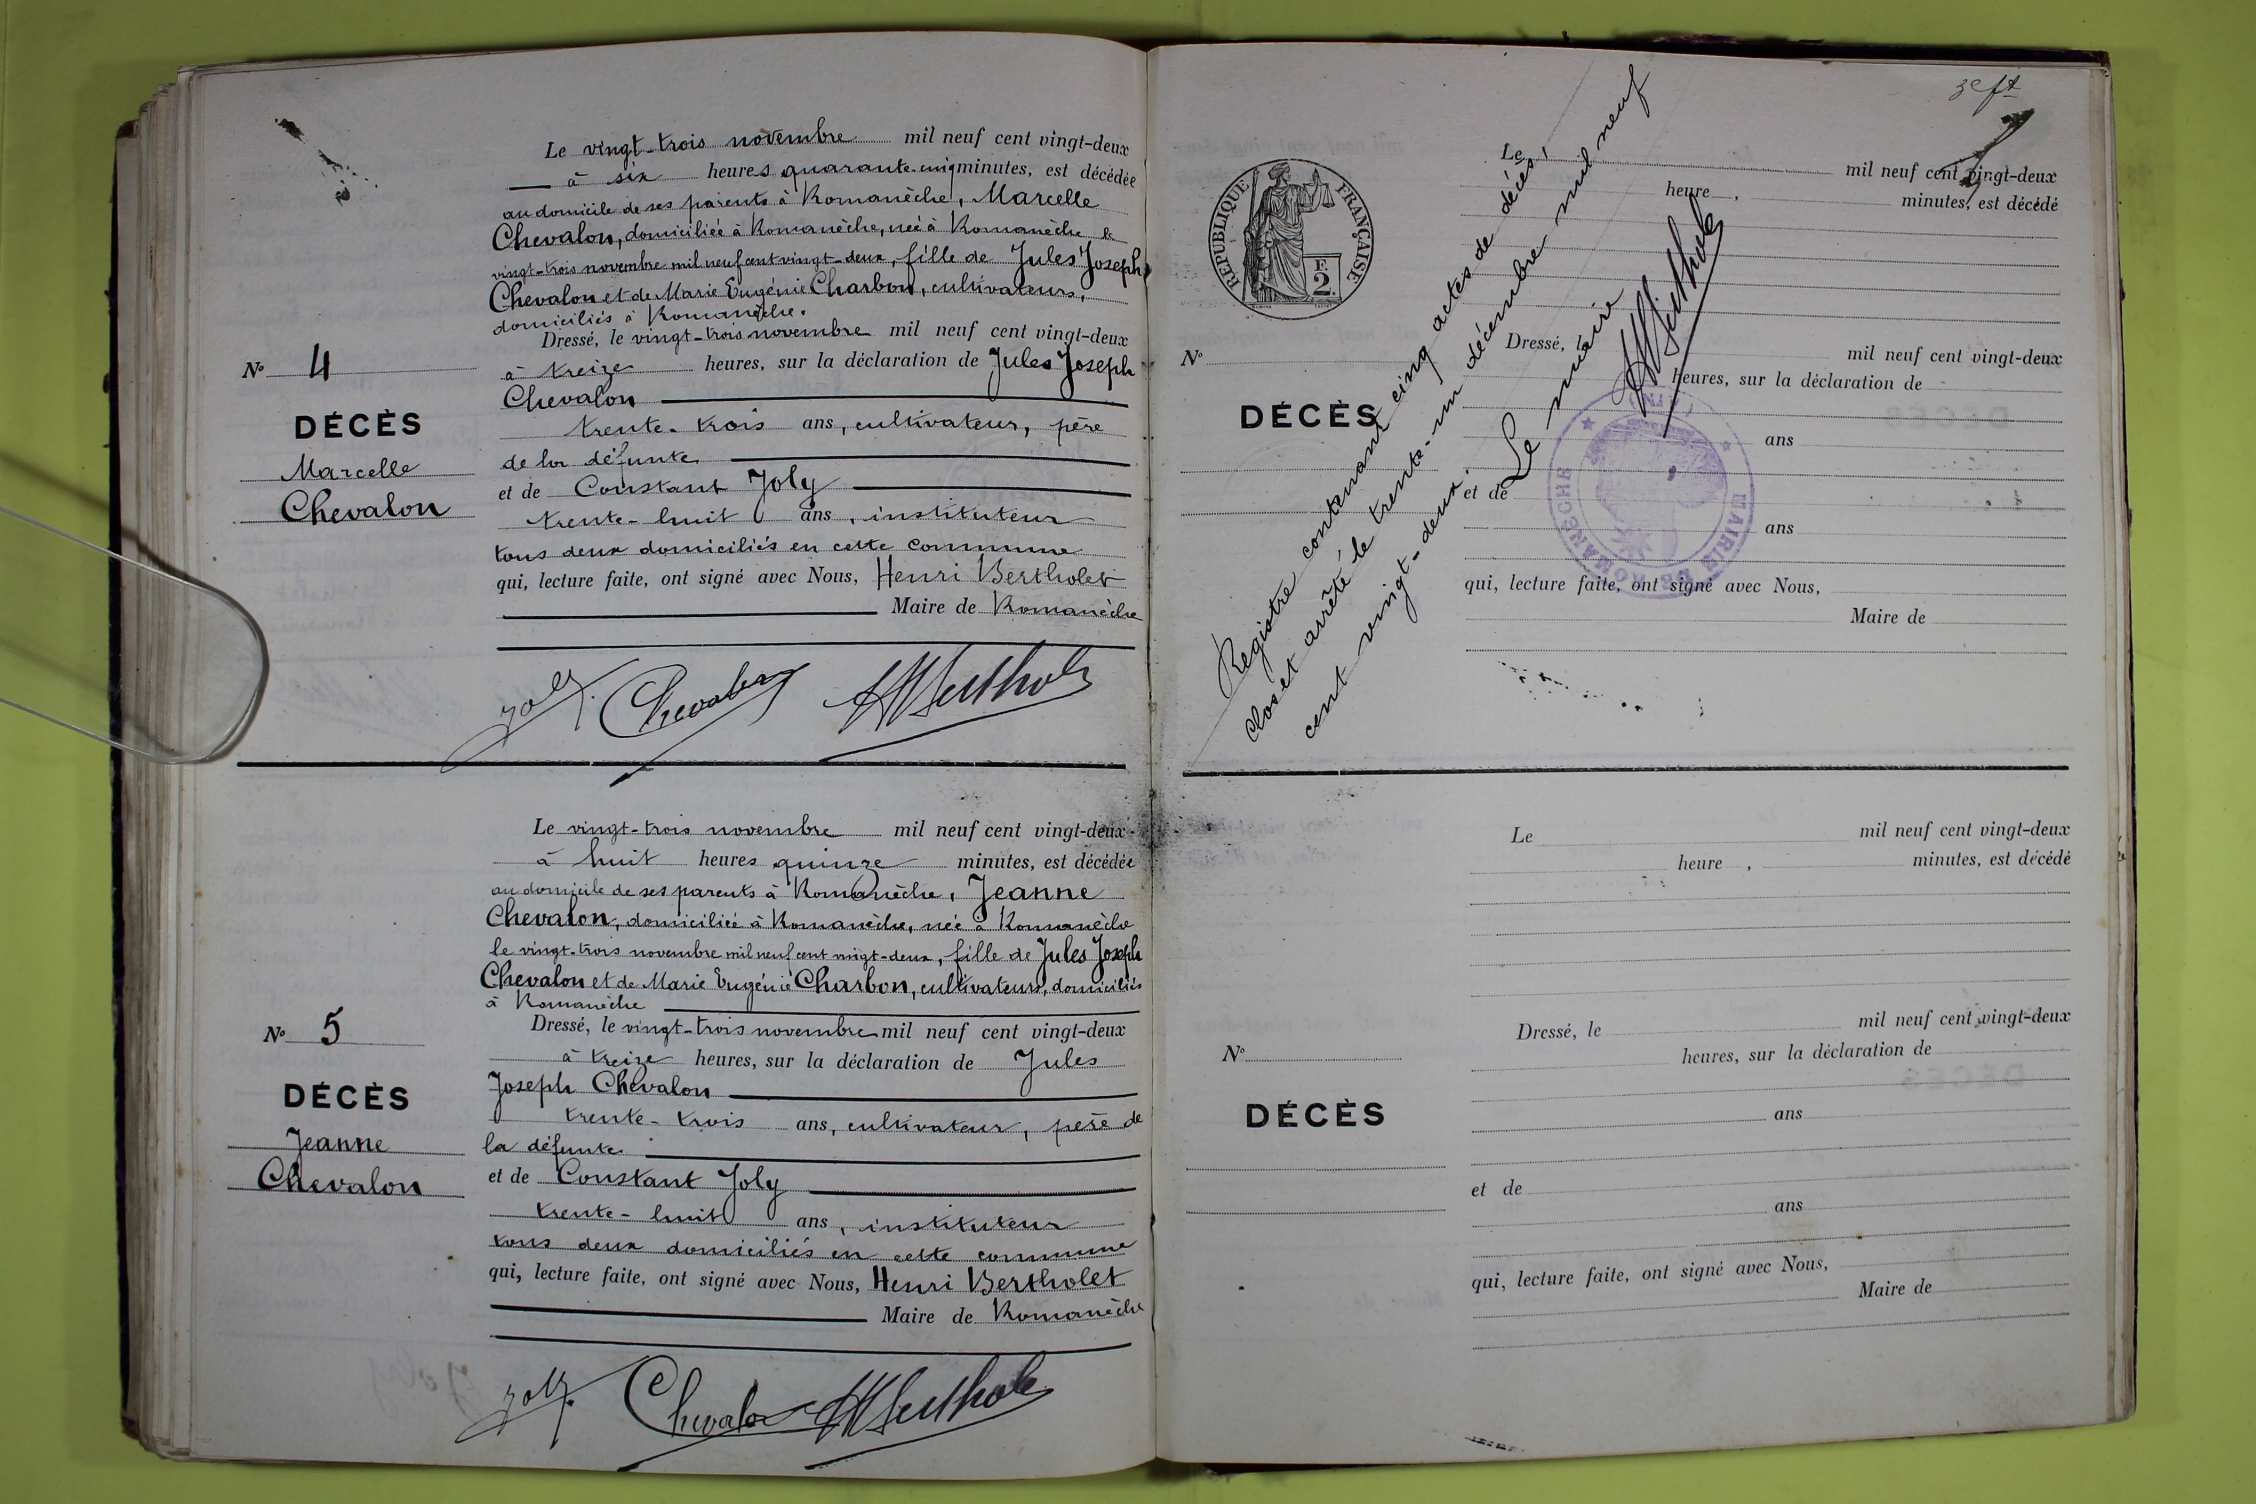 Le vingt-trois novembre mil neuf cent vingt-deux
à six heures quarante-cinq minutes, est décédée
au domicile de ses parents à Romanèche, Marcelle
Chevalon, domiciliée à Romanèche, née à Romanèche le
vingt-trois novembre mil neuf cent vingt-deux, fille de Jules Joseph
Chevalon et de Marie Eugénie Charbon, cultivateurs,
domiciliés à Romanèche.
Dressé, le vingt-trois novembre mil neuf cent vingt-deux
à treize heures, sur la déclaration de Jules Joseph
Chevalon
trente-trois ans, cultivateur, père
de la défunte
et de Constant Joly
trente-huit ans, instituteur
tous deux domiciliés en cette commune
qui, lecture faite, ont signé avec Nous, Henri Bertholet
Maire de Romanèche
Nº 4
DÉCÈS
Marcelle
Chevalon
Joly. Chevalon HBerthole
Le vingt-trois novembre mil neuf cent vingt-deux
à huit heures quinze minutes, est décédée
au domicile de ses parents à Romanèche, Jeanne
Chevalon, domiciliée à Romanèche, née à Romanèche
le vingt-trois novembre mil neuf cent vingt-deux, fille de Jules Joseph
Chevalon et de Marie Eugénie Charbon, cultivateurs, domiciliés
à Romanèche
Dressé, le vingt-trois novembre mil neuf cent vingt-deux
à treize heures, sur la déclaration de Jules
Joseph Chevalon
trente-trois ans, cultivateur, père de
la défunte
et de Constant Joly
trente-huit ans, instituteur
tous deux domiciliés en cette commune
qui, lecture faite, ont signé avec Nous, Henri Bertholet
Maire de Romanèche
Nº 5
DÉCÈS
Jeanne
Chevalon
Joly. Chevalon HBerthole
3e ft
RÉPUBLIQUE FRANÇAISE
F.
2.
Le mil neuf cent vingt-deux
heure , minutes, est décédé
Dressé, le mil neuf cent vingt-deux
heures, sur la déclaration de
Nº
DÉCÈS
ans
et de
ans
qui, lecture faite, ont signé avec Nous,
Maire de
Registre contenant cinq actes de décès,
clos et arrêté le trente-un décembre mil neuf
cent vingt-deux. Le maire
HBerthole
MAIRIE DE ROMANÈCHE
(AIN)
Le mil neuf cent vingt-deux
heure , minutes, est décédé
Dressé, le mil neuf cent vingt-deux
heures, sur la déclaration de
Nº
DÉCÈS
ans
et de
ans
qui, lecture faite, ont signé avec Nous,
Maire de